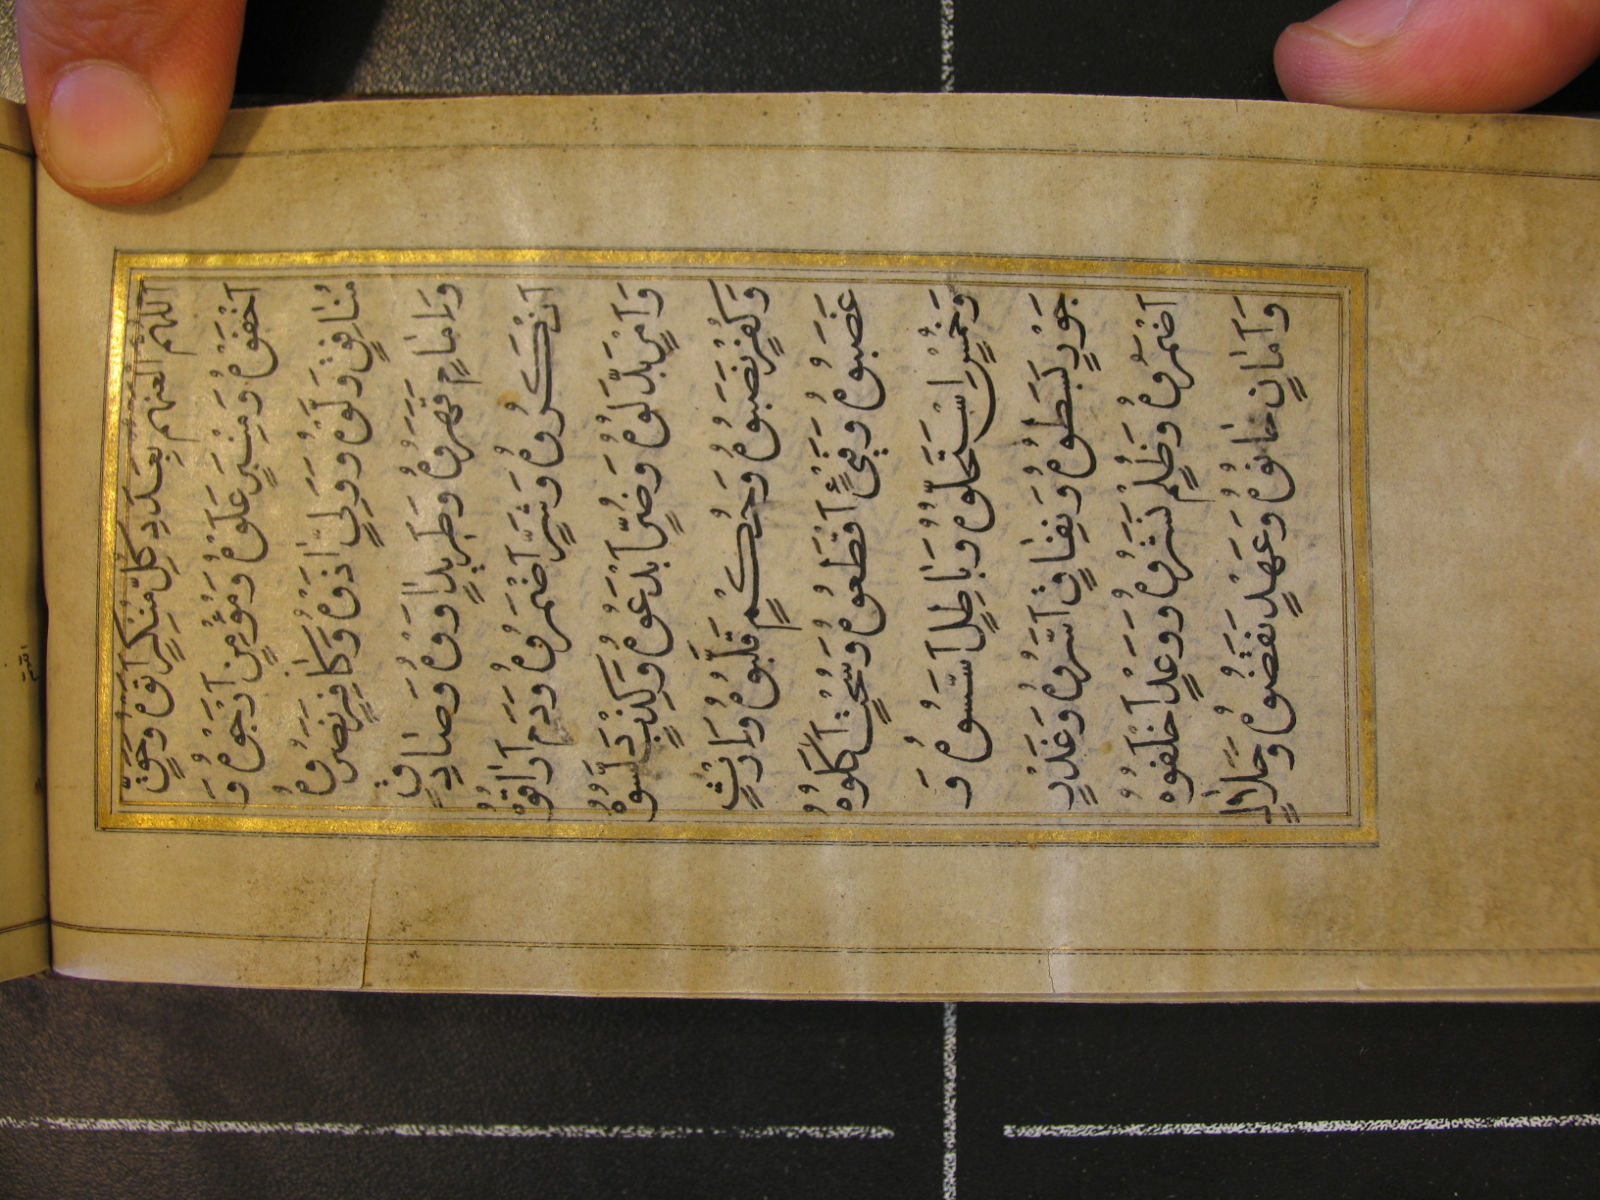 اَللّٰهُمَّ الْعَنْهُمْ بِعَدَدِ كُلِّ مُنْكَرٍ اَتَوْهُ وَحَقٍّ
اَخْفَوْهُ وَمِنْبَرٍ عَلَوْهُ وَمُؤْمِنٍ اَرْجَوْهُ وَ
مُنٰافِقٍ وَلَّوْهُ وَوَلِيٍّ اٰذَوْهُ وَكٰافِرٍ نَصَرُوهُ
وَاِمٰامٍ قَهَرُوهُ وَطَرِيدٍ اٰوَوْهُ وَصٰادِقٍ
اَنْكَرُوهُ وَشَرٍّ اَضْمَرُوهُ وَدَمٍ اَرٰاقُوهُ
وَاَمْرٍ بَدَّلُوهُ وَضُرٍّ اَبْدَعُوهُ وَكِذْبٍ دَلَّسُوهُ
وَكُفْرٍ نَصَبُوهُ وَحُكْمٍ قَلَّبُوهُ وَاِرْثٍ
غَصَبُوهُ وَفَيْءٍ اقْتَطَعُوهُ وَسُحْتٍ اَكَلُوهُ
وَخُمْسٍ اسْتَحَلُّوهُ وَبٰاطِلٍ اَسَّسُوهُ وَ
جَوْرٍ بَسَطُوهُ وَنِفٰاقٍ اَسَرُّوهُ وَغَدْرٍ
اَضْمَرُوهُ وَظُلْمٍ نَشَرُوهُ وَوَعْدٍ اَخْلَفُوهُ
وَاَمٰانٍ خٰانُوهُ وَعَهْدٍ نَقَضُوهُ وَحَلٰالٍ